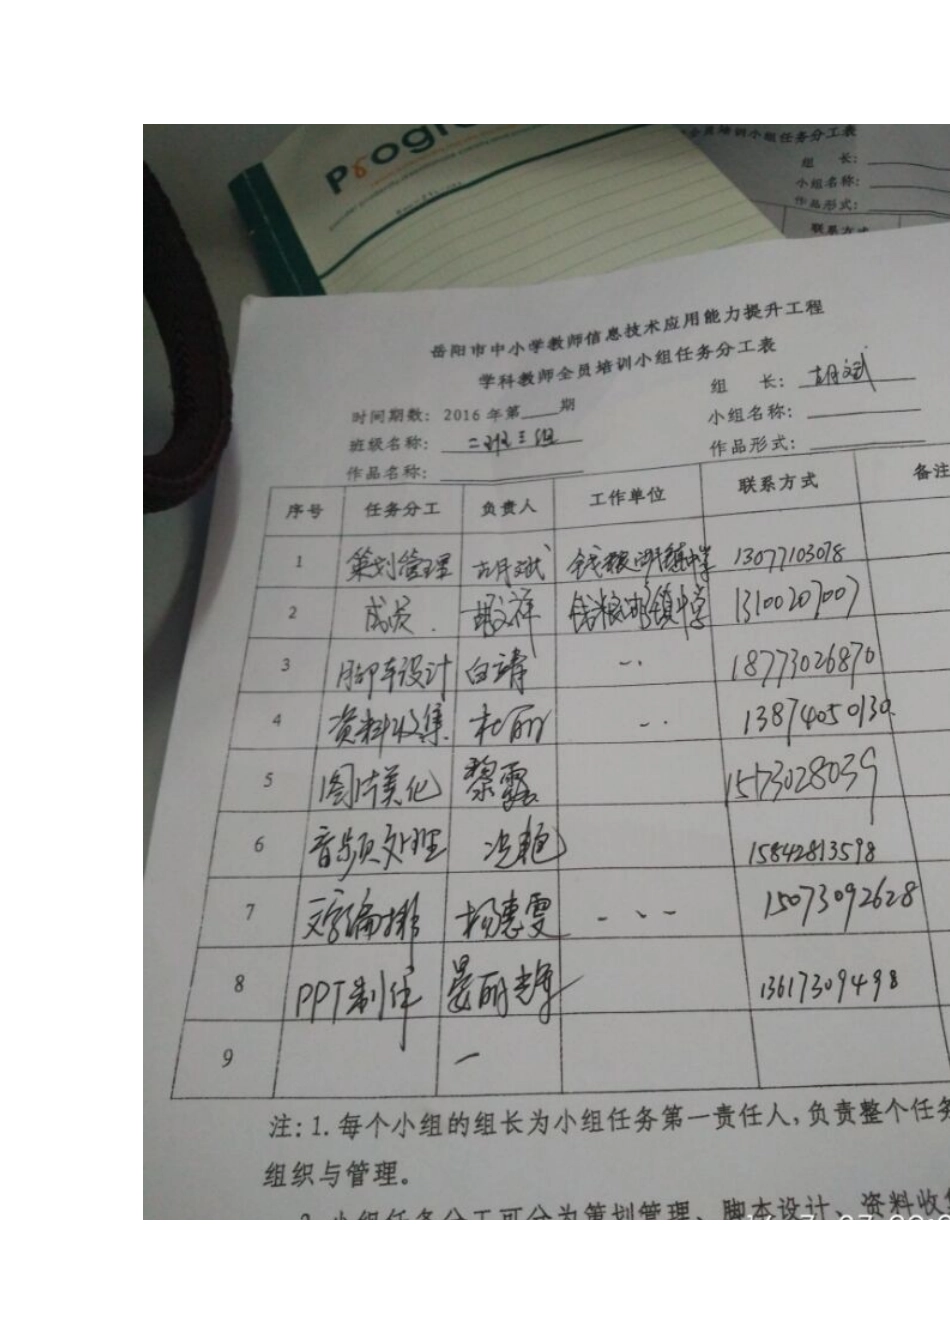 Progr
全员培训小组任务分工表
组 长:
小组名称:
作品形式:
联系方式
岳阳市中小学教师信息技术应用能力提升工程
学科教师全员培训小组任务分工表
时间期数: 2016 年第 期
组 长: 胡斌
班级名称: 二班三组
小组名称:
作品名称:
作品形式:
序号 任务分工 负责人 工作单位 联系方式 备注
1 策划管理 胡斌 钱粮湖镇中学 13077103078
2 成员 胡文祥 钱粮湖镇中学 13100207007
3 脚本设计 白靖 18773026870
4 资料收集 杜丽 13874050130
5 图片美化 黎露 15173028039
6 音频处理 冼艳 15842813598
7 文字编排 杨惠雯 15073092628
8 PPT制作 晏丽 13617309498
9 一
注: 1. 每个小组的组长为小组任务第一责任人, 负责整个任务
组织与管理。
2. 小组任务分工可分为策划管理、脚本设计、资料收集